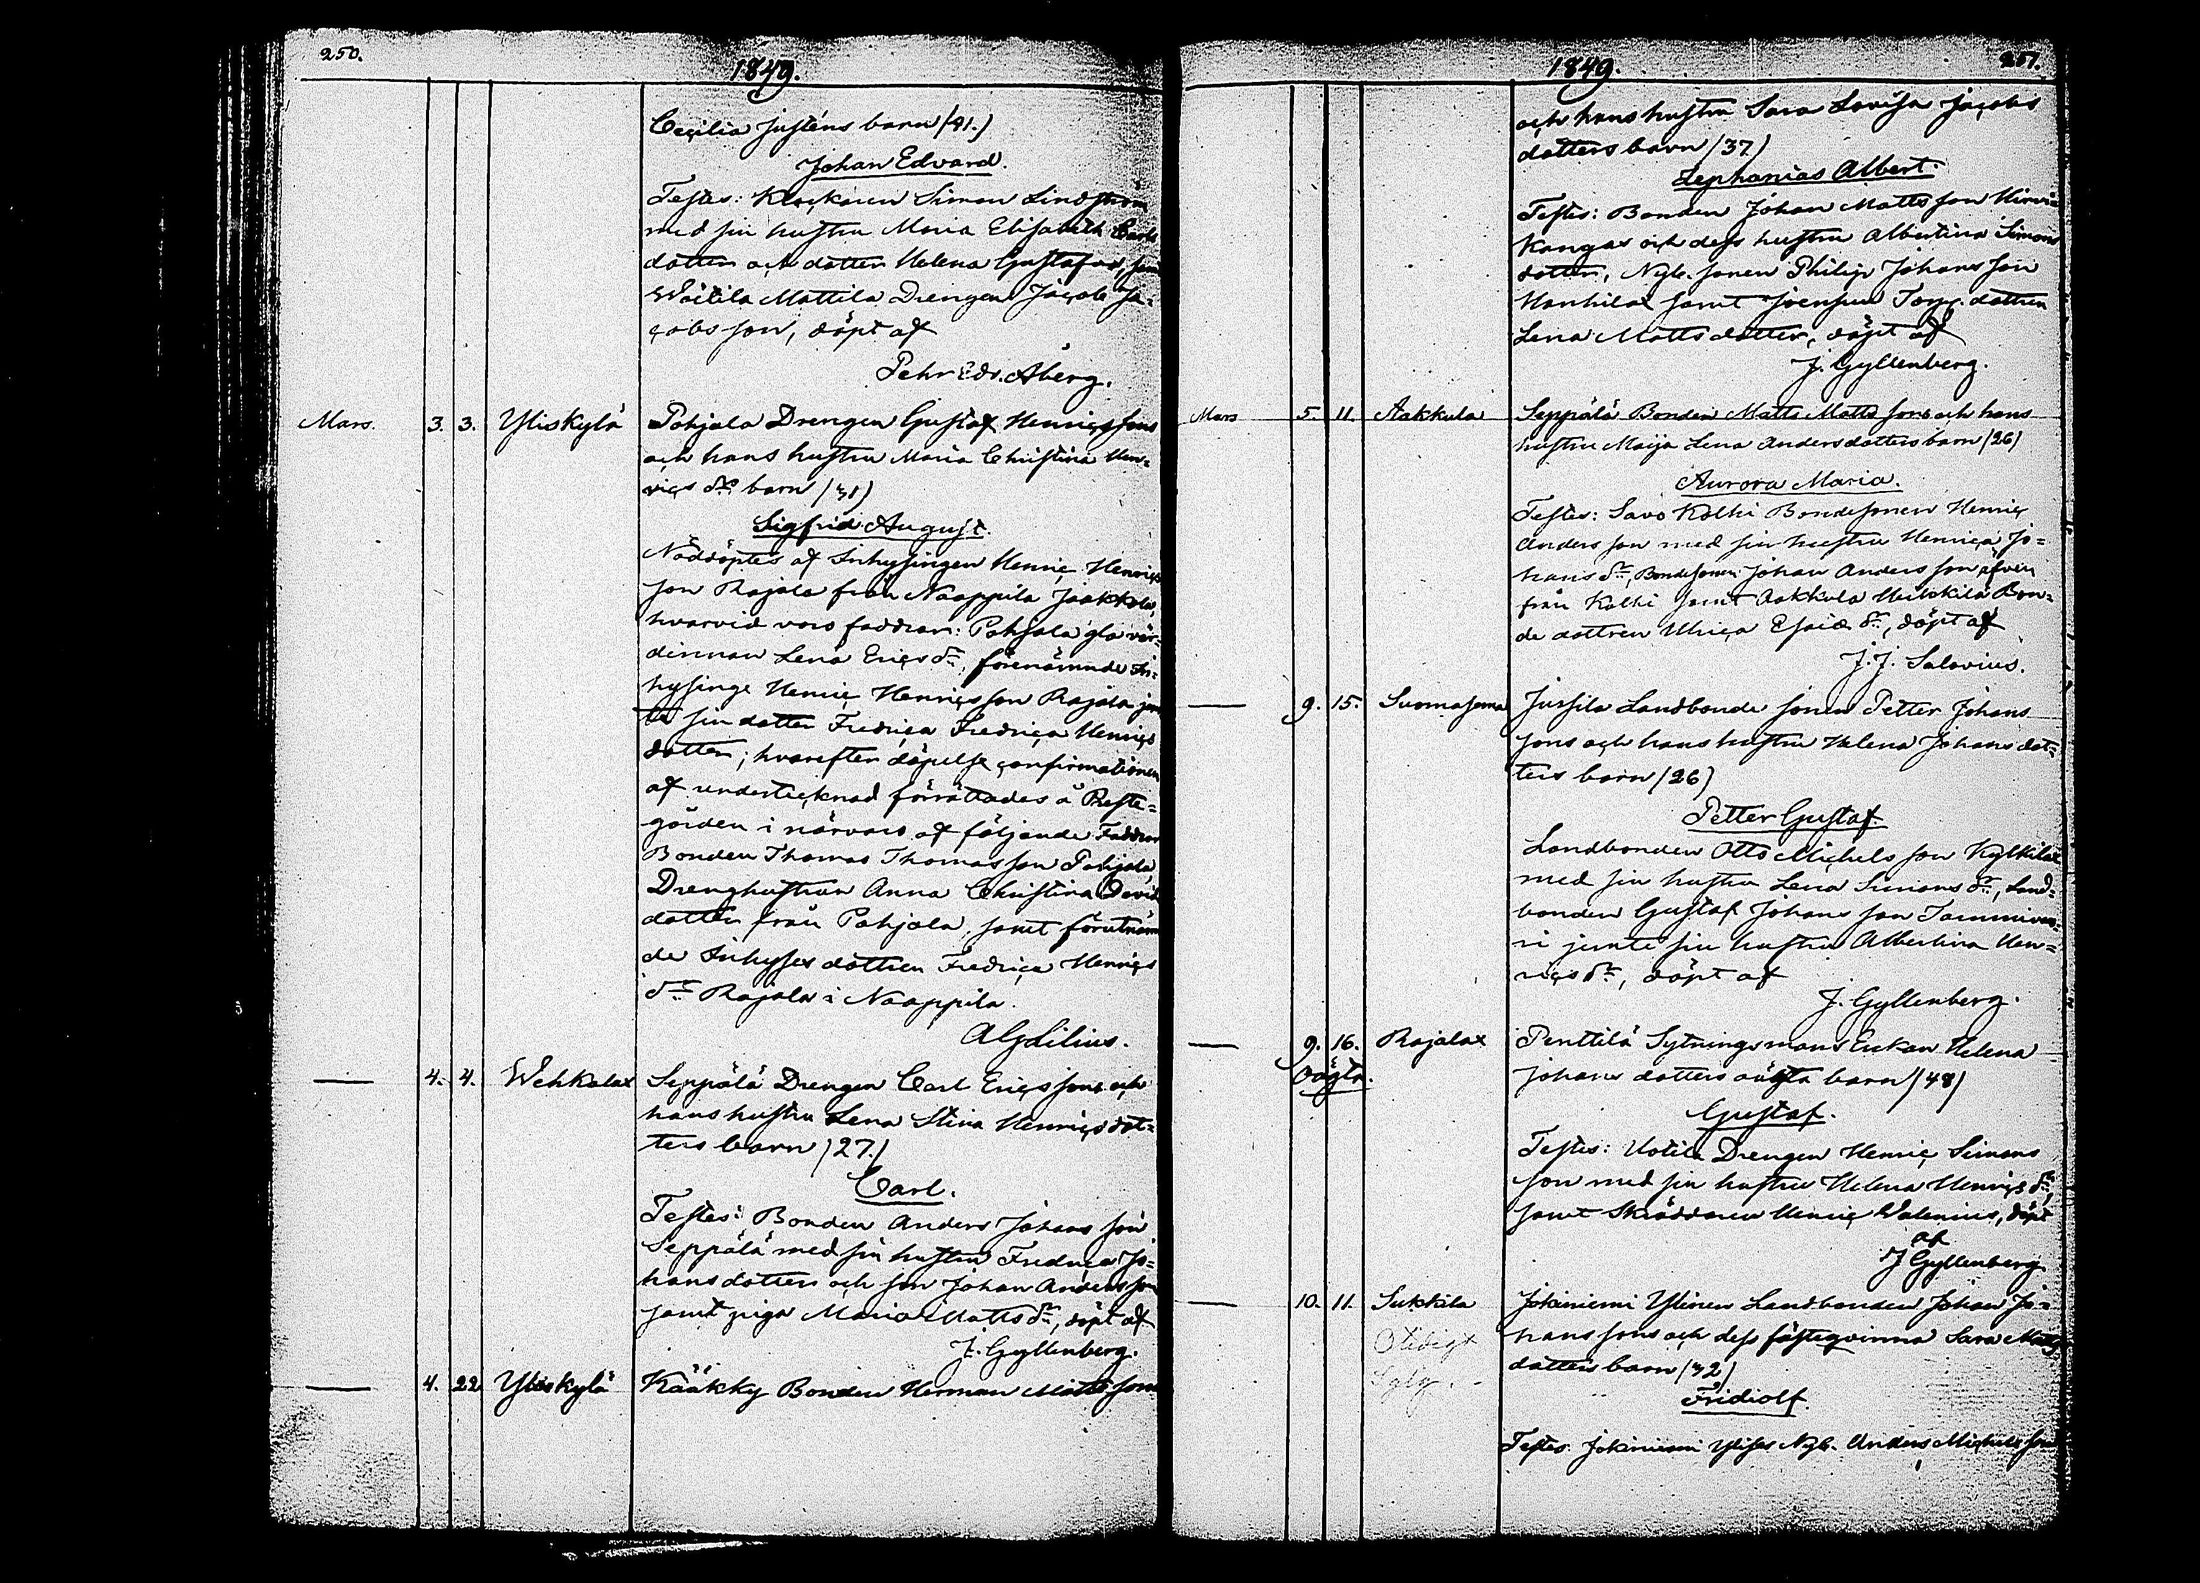 250.
1849.
Cecilia Justéns barn (41.)
Johan Edvard.
Testes: Klockaren Simon Lindström
med sin hustru Maria Elisabeth Carls
dotter och dotter Helena Gustafva, samt
Woitila Mattila Drengen Jacob Ja-
cobsson, döpt af
Pehr Edv. Åberg.
Mars. 3. 3. Yliskylä Pohjala Drengen Gustaf Henricssons
och hans hustru Maria Christina Hen-
rics dr barn (31)
Sigfrid August.
Nöddöptes af Inhysingen Henric Henrics
son Rajala från Naappila Jaakkola,
hvarvid voro faddrar: Pohjala gla vär-
dinnan Lena Erics dr, förenämnde In-
hysinge Henric Henricsson Rajala jem
te sin dotter Fredrica Fredrica Henrics
dotter; hvarefter döpelse confirmationen
af undertecknad förrättades å Preste-
gården i närvaro af följande Faddrar
Bonden Thomas Thomasson Pohjala,
Drenghustrun Anna Christina Davids
dotter från Pohjala, samt förutnämn
de Inhyses dottren Fredrica Henrics
dr Rajala i Naappila.
A G Lilius.
— 4. 4. Wehkalax Seppälä Drengen Carl Ericssons och
hans hustru Lena Stina Henrics dot-
ters barn (27.)
Carl.
Testes: Bonden Anders Johansson
Seppälä med sin hustru Fredrica Jo-
hansdotter och son Johan Andersson
samt piga Maria Matts dr, döpt af
J. Gyllenberg.
— 4. 22 Yliskylä Kääkky Bonden Herman Mattssons
1849.
251.
och hans hustru Sara Lovisa Jacobs
dotters barn (37)
Zephanias Albert.
Testes: Bonden Johan Mattsson Hirvi-
kangas och dess hustru Albertina Simons
dotter, Nyb. sonen Philip Johansson
Hanhilax samt Torp. dottren
Lena Mattsdotter, döpt af
J. Gyllenberg.
Mars 5. 11. Aakkula Seppälä Bonden Matts Mattssons och hans
hustru Maija Lena Andersdotters barn (26)
Aurora Maria.
Testes: Savo Kolhi Bondesonen Henric
Andersson med sin hustru Henrica Jo-
hans dr, Bondesonen Johan Andersson äfven
från Kolhi samt Aakkula Heikkilä Bon-
de dottren Ulrica Esaias dr, döpt af
J. J. Salovius.
— 9. 15. Suomasema Jussila Landbonde sonen Petter Johans
sons och hans hustru Helena Johans dot-
ters barn (26)
Petter Gustaf.
Landbonden Otto Michelsson Kylkilax
med sin hustru Lena Simons dr, Land-
bonden Gustaf Johansson Tamminie-
ni jemte sin hustru Albertina Hen-
rics dr, döpt af
J. Gyllenberg.
— 9. 16. Rajalax Penttilä Sytningsmans Enkan Helena
Oägta. Johans dotters oägta barn (48)
Gustaf.
Testes: Uotila Drengen Henric Simons
son med sin hustru Helena Henrics dr
samt Skräddaren Henric Valenius, döpt
af
J Gyllenberg
— 10. 11. Sukkila Jokiniemi Ylinen Landbonden Johan Jo-
Otidigt hanssons och dess fästeqvinna Sara Matts
dotters barn (32)
Fridiolf.
Testes: Jokiniemi Nyb. Anders Michelsson